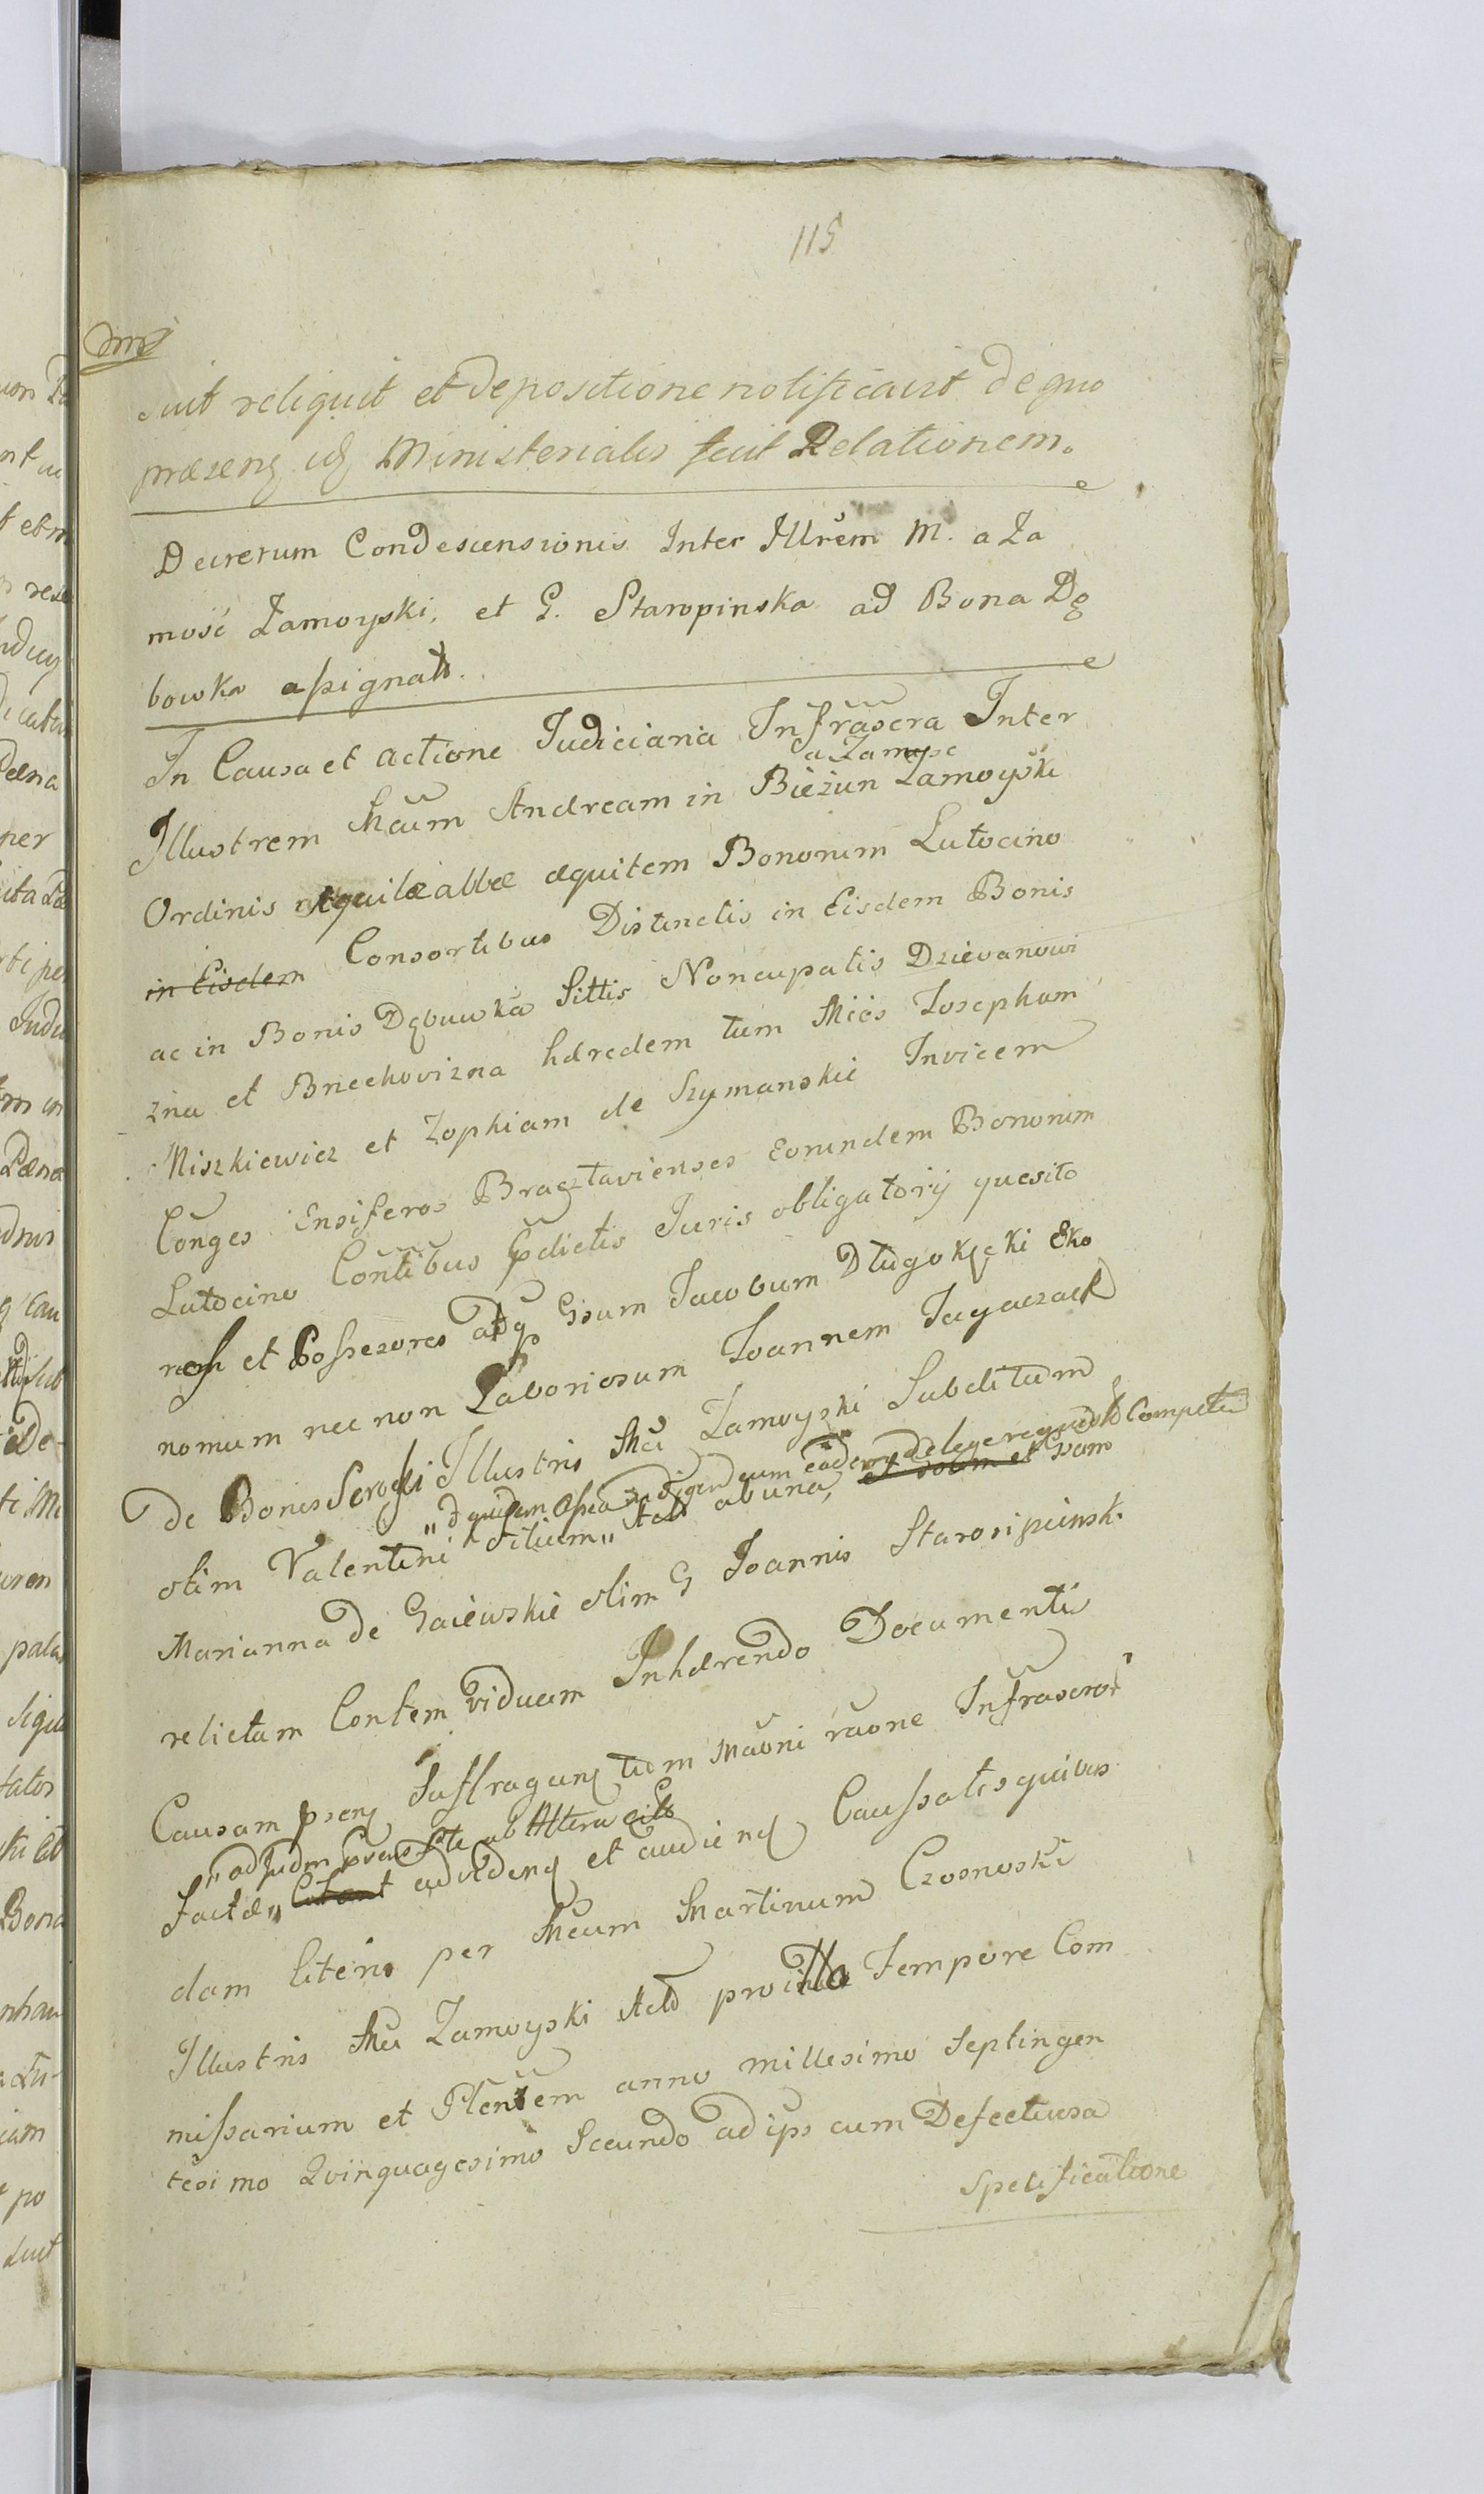 115
suit reliquit et depositione notificavit de quo
præsens idq Ministerialis fecit Relationem.
Decretum Condescensionis Inter Illrem M. a Za
mość Zamoyski, et G. Staropinska ad Bona Dę
bowka assignat.
In Causa et actione Judiciaria Infrascra Inter
a Zamość
Illustrem Mcum Andream in Bieżun Zamoyski
Ordinis Aquilæ albæ æquitem Bonorum Lutocino
in Eisdem Consortibus Distinctis in Eisdem Bonis
ac in Bonis Dębuwka Sittis Noncupatis Dzievanowi
zna et Brzechovizna hæredem tum Mcos Josephum
Niszkiewicz et Zophiam de Szymanskie Invicem
Conges Ensiferos Bracztavienses Eorundem Bonorum
Lutocino Contibus Pdictis Juris obligatorij quesito
ress et Possessores adq Gsum Jacobum Długokęcki Eko
nomum nec non Laboriosum Joannem Jagaczack
De Bonis Illustris Mci Zamoyski Subditum
olim Valentini Filium„ Act ab una, et Gsam
Marianna de Gaiewskie olim G Joannis Starosipinsk.
relictam Contem viduam Inhærendo Documentis
Causam psens Suffragans tum Mauni raone Infrascror
„ad Judm ab Altera
Factæ„ Citant ad videns et audiens Caussatis quibus
dam literis per Mcum Martinum Czosnoski
Illustris Mci Zamoyski Act pro illo Tempore Com
missarium et Plentem anno millesimo Septingen
tesimo Qvinquagesimo Secundo ad ips cum Defectuosa
Spetificatione